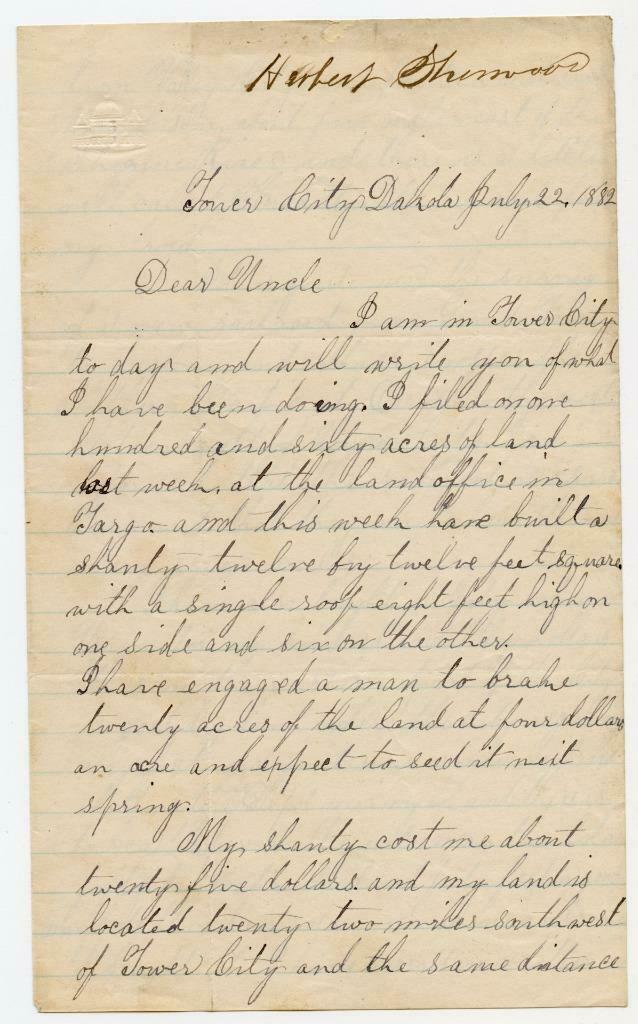 Herbert Sherwood
Tower City Dakota July 22. 1882
Dear Uncle
I am in Tower City
to day and will write you of what
I have been doing. I filed on one
hundred and sixty acres of land
last week. at the land office in
Fargo and this week have built a
shanty twelve by twelve feet square.
with a single roof eight feet high on
one side and six on the other.
I have engaged a man to brake
twenty acres of the land at four dollars
an acre and expect to seed it next
spring.
My shanty cost me about
twenty five dollars. and my land is
located twenty two miles southwest
of Tower City and the same distance